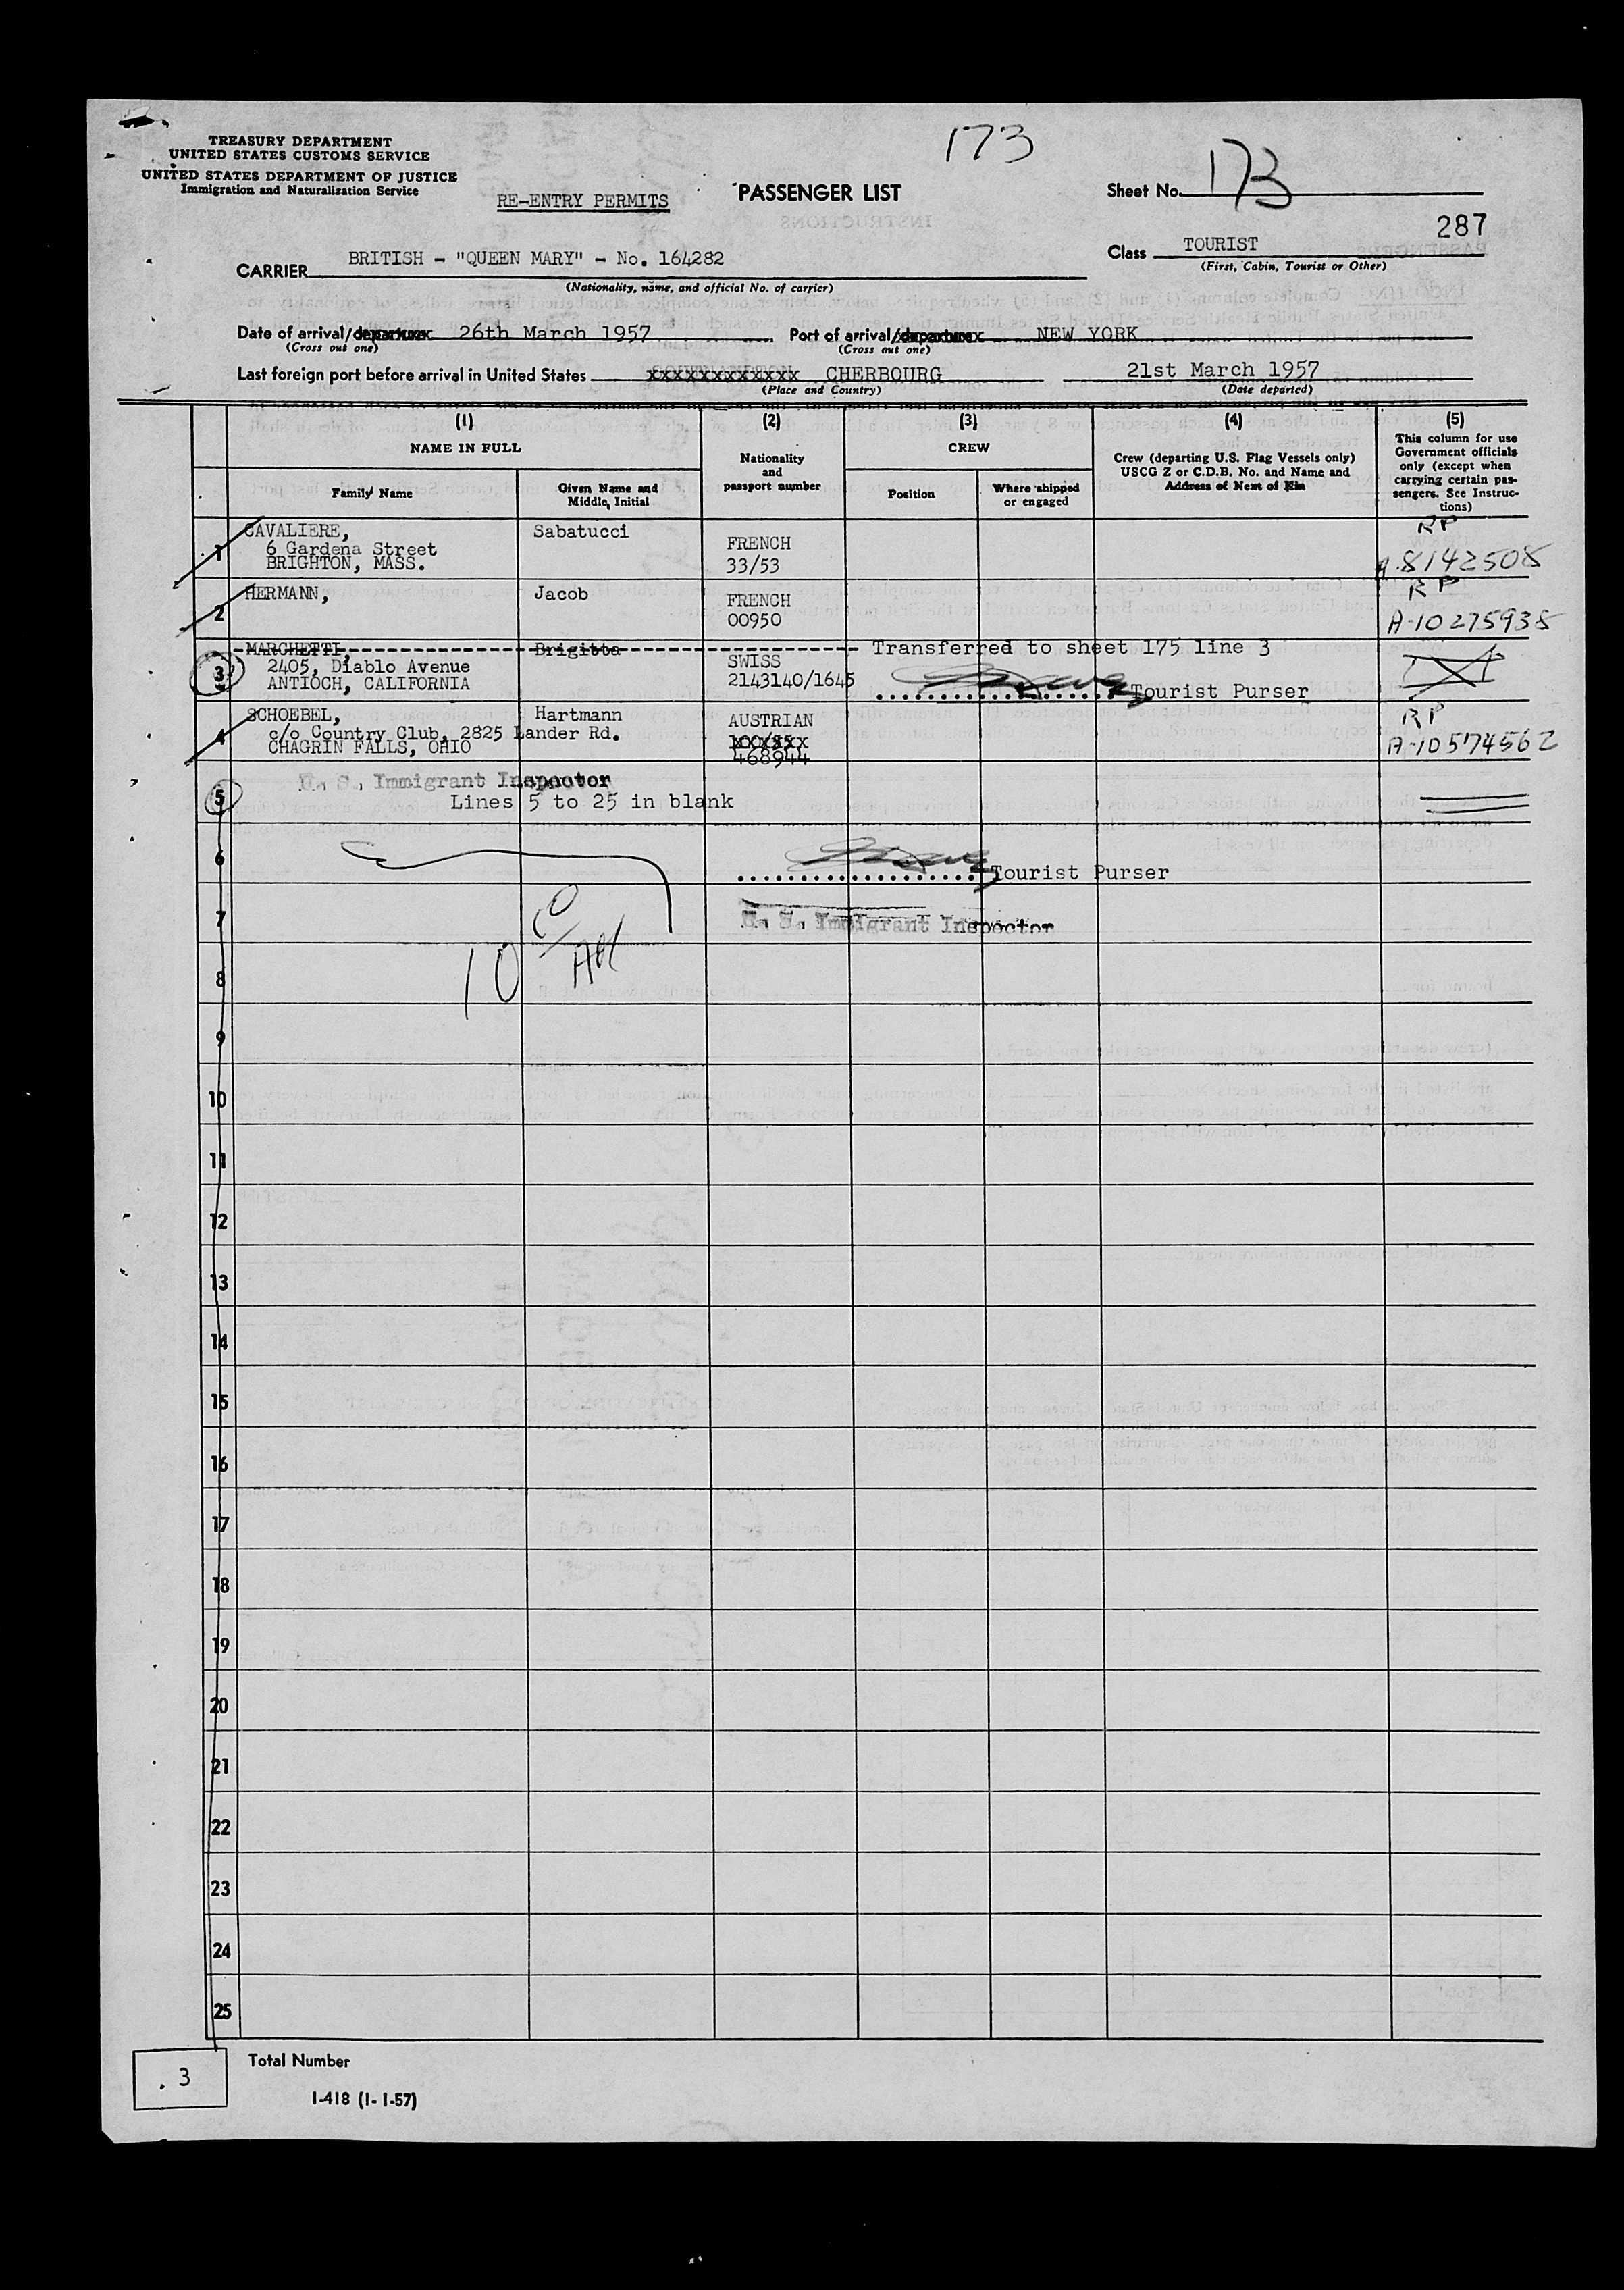 173
TREASURY DEPARTMENT
UNITED STATES CUSTOMS SERVICE
UNITED STATES DEPARTMENT OF JUSTICE
Immigration and Naturalization Service
RE-ENTRY PERMITS
PASSENGER LIST
Sheet No. 173
287
Class TOURIST
(First, Cabin, Tourist or Other)
CARRIER BRITISH - "QUEEN MARY" - No. 164282
(Nationality, name, and official No. of carrier)
Date of arrival/departure 26th March 1957 Port of arrival/departure NEW YORK
(Cross out one) (Cross out one)
Last foreign port before arrival in United States xxxxxxxxxxxx CHERBOURG 21st March 1957
(Place and Country) (Date departed)
(1) NAME IN FULL
Family Name
Given Name and Middle Initial
(2) Nationality and passport number
(3) CREW
Position
Where shipped or engaged
(4)
Crew (departing U.S. Flag Vessels only)
USCG Z or C.D.B. No. and Name and
Address of Next of Kin
(5)
This column for use
Government officials
only (except when
carrying certain pas-
sengers. See Instruc-
tions)
1 CAVALIERE, Sabatucci FRENCH RP
6 Gardena Street 33/53 A-8142508
BRIGHTON, MASS.
2 HERMANN, Jacob FRENCH RP
00950 A-10275938
3 MARCHETTI, Brigitta SWISS Transferred to sheet 175 line 3
2405, Diablo Avenue 2143140/1645
ANTIOCH, CALIFORNIA Tourist Purser
4 SCHOEBEL, Hartmann AUSTRIAN RP
c/o Country Club, 2825 Lander Rd. A-10574562
CHAGRIN FALLS, OHIO 468944
U. S. Immigrant Inspector
5 Lines 5 to 25 in blank
6 Tourist Purser
7 U. S. Immigrant Inspector
8 10
9
10
11
12
13
14
15
16
17
18
19
20
21
22
23
24
25
3 Total Number
I-418 (1-1-57)